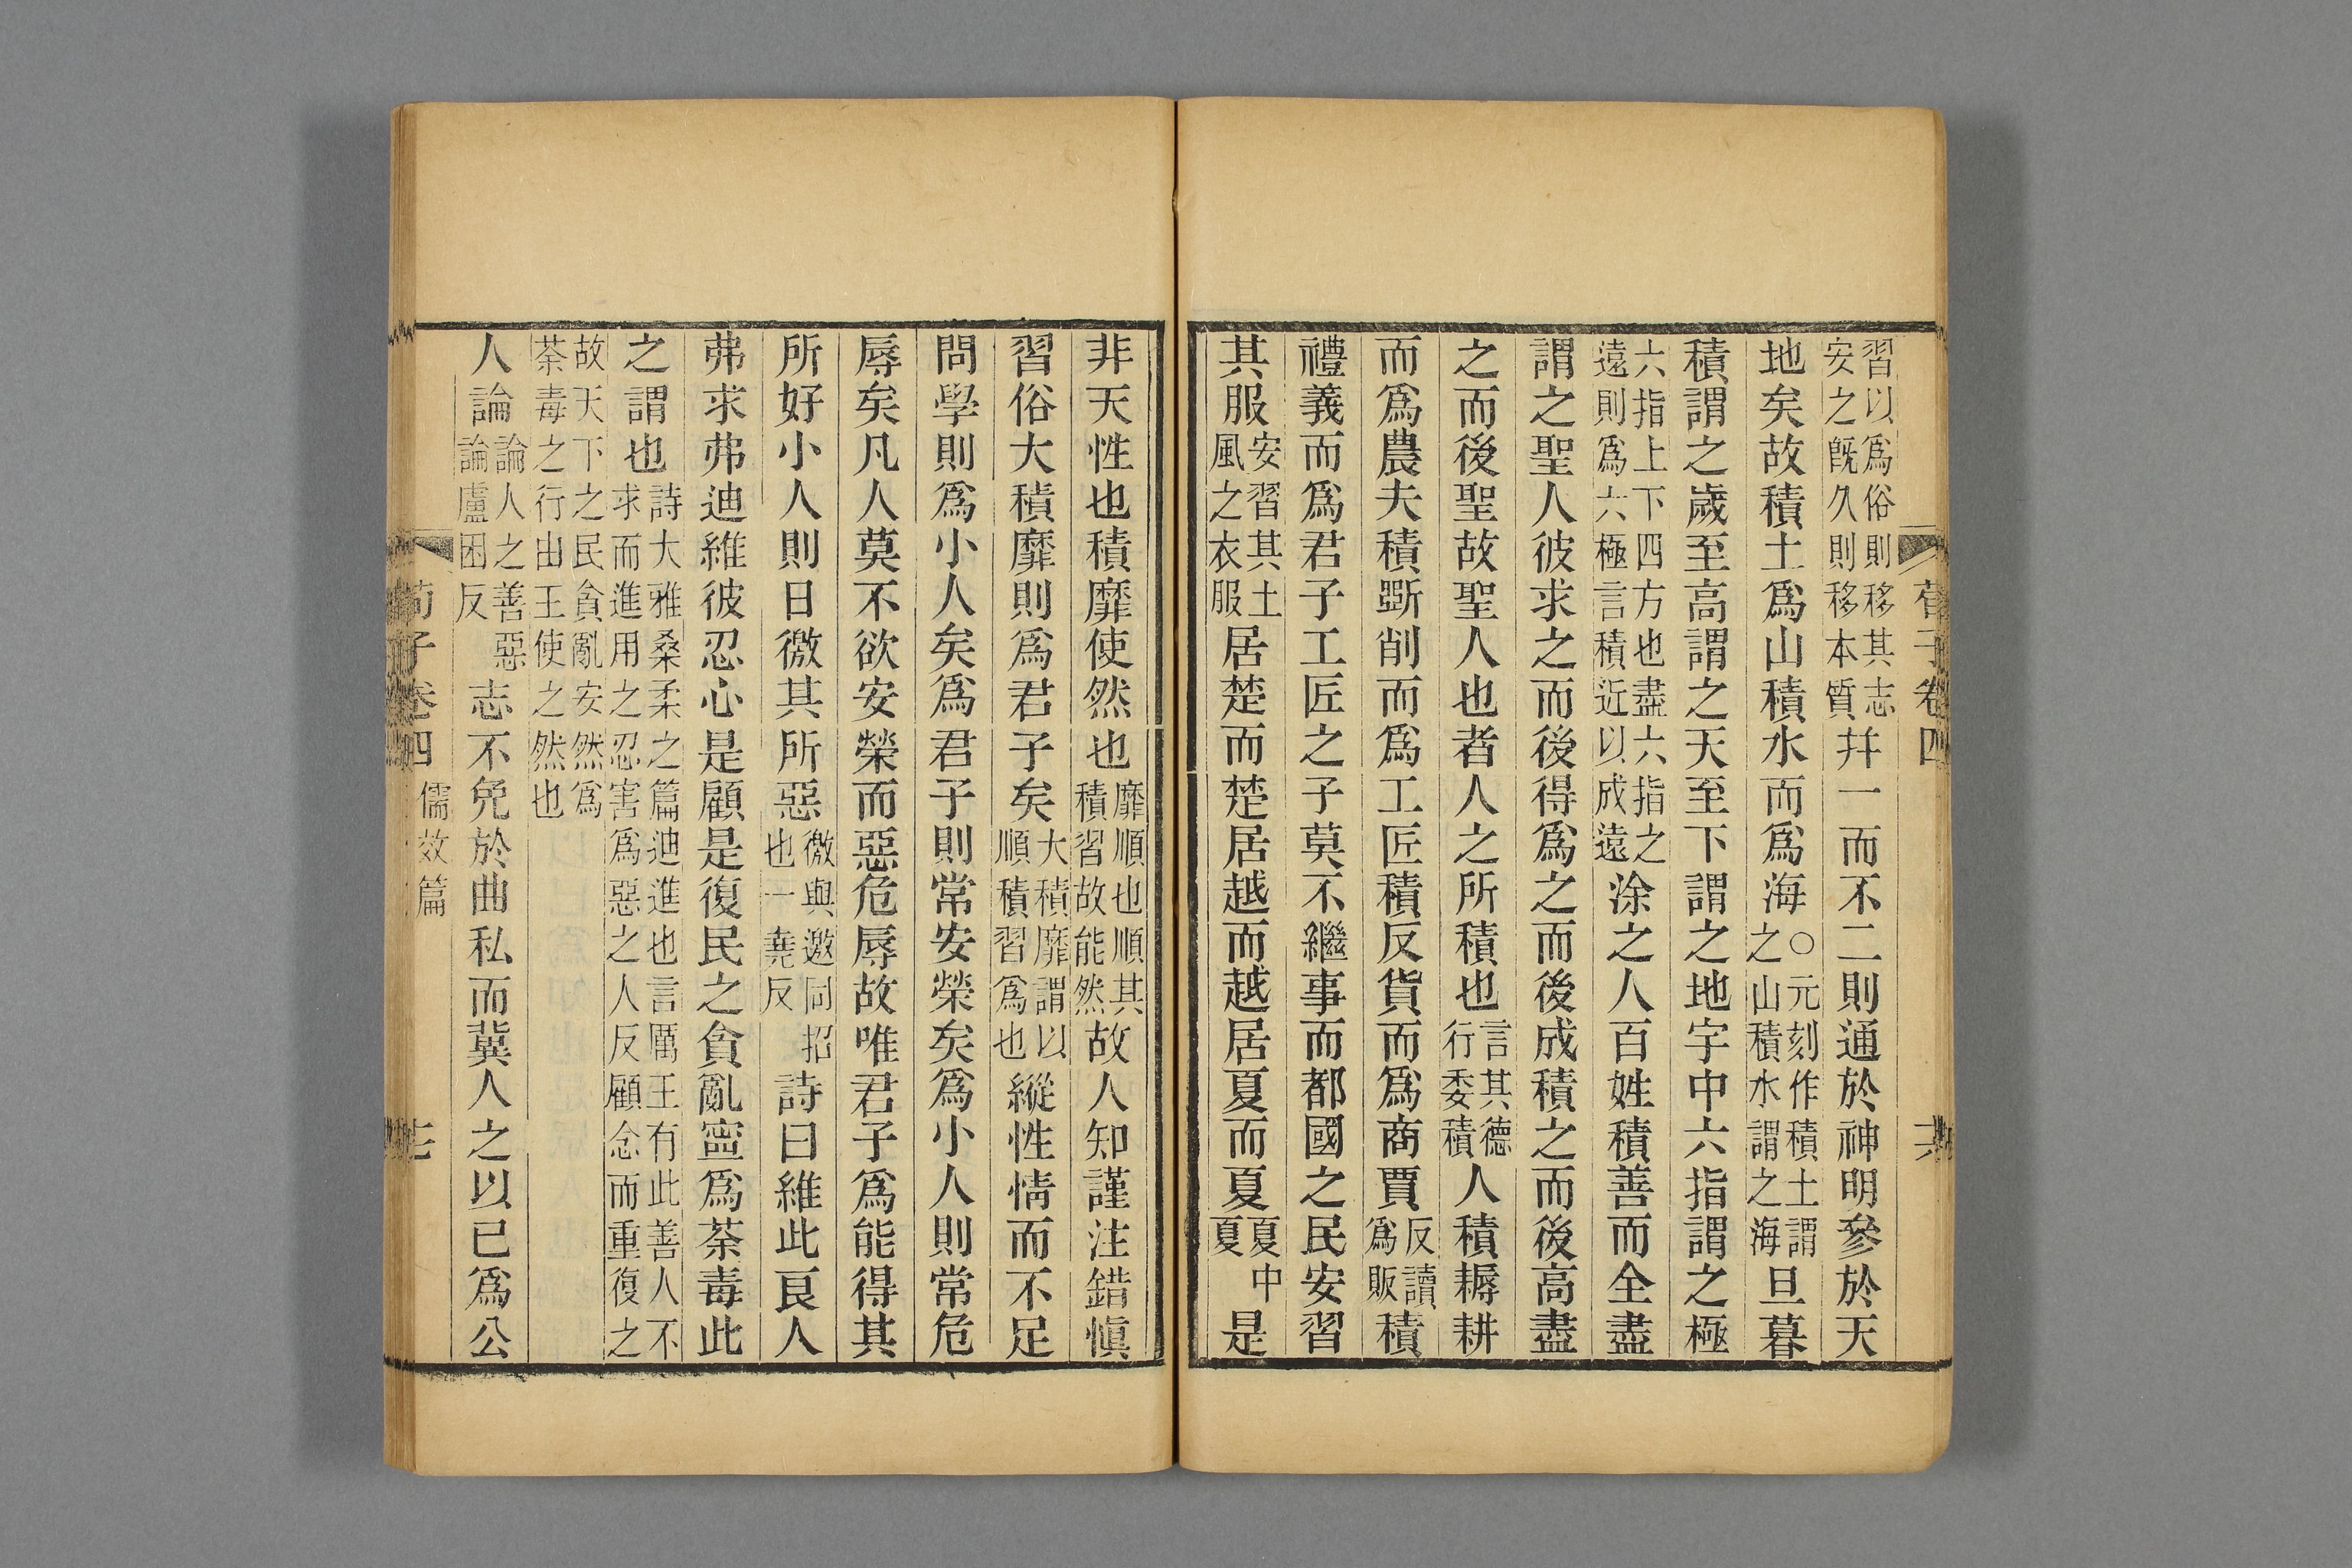 荀子卷四
習以爲俗則移其志安之旣久則移本質幷一而不二則通於神明參於天
地矣故積土爲山積水而爲海〇元刻作積土謂之山積水謂之海旦暮
積謂之歲至高謂之天至下謂之地宇中六指謂之極
六指上下四方也盡六指之遠則爲六極言積近以成遠涂之人百姓積善而全盡
謂之聖人彼求之而後得爲之而後成積之而後高盡
之而後聖故聖人也者人之所積也言其德行委積人積耨耕
而爲農夫積斲削而爲工匠積反貨而爲商賈反讀爲販積
禮義而爲君子工匠之子莫不繼事而都國之民安習
其服安習其土風之衣服居楚而楚居越而越居夏而夏夏中夏是
非天性也積靡使然也靡順也順其積習故能然故人知謹注錯愼
習俗大積靡則爲君子矣大積靡謂以順積習爲也縱性情而不足
問學則爲小人矣爲君子則常安榮矣爲小人則常危
辱矣凡人莫不欲安榮而惡危辱故唯君子爲能得其
所好小人則日徼其所惡徼與邀同招也一堯反詩曰維此良人
弗求弗迪維彼忍心是顧是復民之貪亂寍爲荼毒此
之謂也詩大雅桑柔之篇迪進也言厲王有此善人不求而進用之忍害爲惡之人反顧念而重復之
故天下之民貪亂安然爲荼毒之行由王使之然也
人論論人之善惡論盧困反志不免於曲私而冀人之以已爲公
荀子卷四 儒效篇